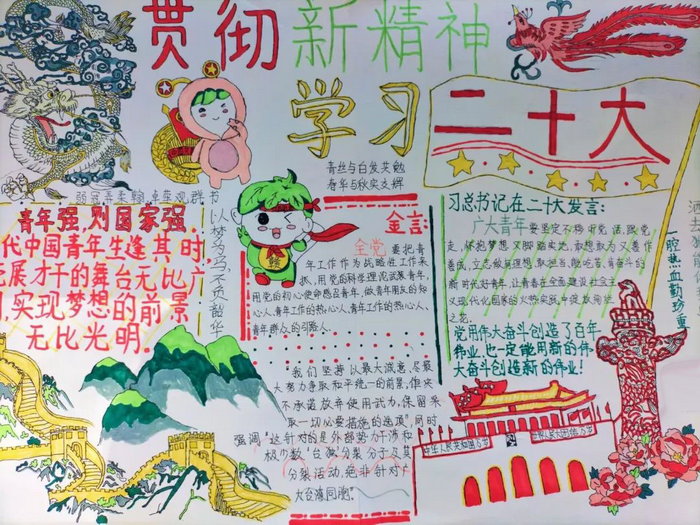 贯彻新精神
学习
二十大
青丝与白发共勉
春华与秋实支辉
弱冠弄柔翰 卓荦观群书
以梦为马 不负韶华
青年强,则国家强.
代中国青年生逢其时,
展才干的舞台无比广
,实现梦想的前景
无比光明.
金言:
全党 要把青
年工作作为战略性工作来
抓,用党的科学理论武装青年,
用党的初心使命感召青年,做青年朋友的知
心人、青年工作的热心人、青年工作的热心人、
青年群众的引路人.
"我们坚持以最大诚意、尽最
大努力争取和平统一的前景,但决
不承诺放弃使用武力,保留采
取一切必要措施的选项"同时
强调"这针对的是外部势力干涉和
极少数"台独"分裂分子及其
分裂活动,绝非针对广
大台湾同胞.
习总书记在二十大发言:
广大青年要坚定不移听党话、跟党
走,怀抱梦想又脚踏实地,敢想敢为又善作
善成,立志做有理想、敢担当、能吃苦、肯奋斗的
新时代好青年,让青春在全面建设社会主
义现代化国家的火热实践中绽放绚丽
之花.
党用伟大奋斗创造了百年
伟业,也一定能用新的伟
大奋斗创造新的伟业!
一腔热血勤珍重
赣
中华人民共和国万岁
世界人民大团结万岁